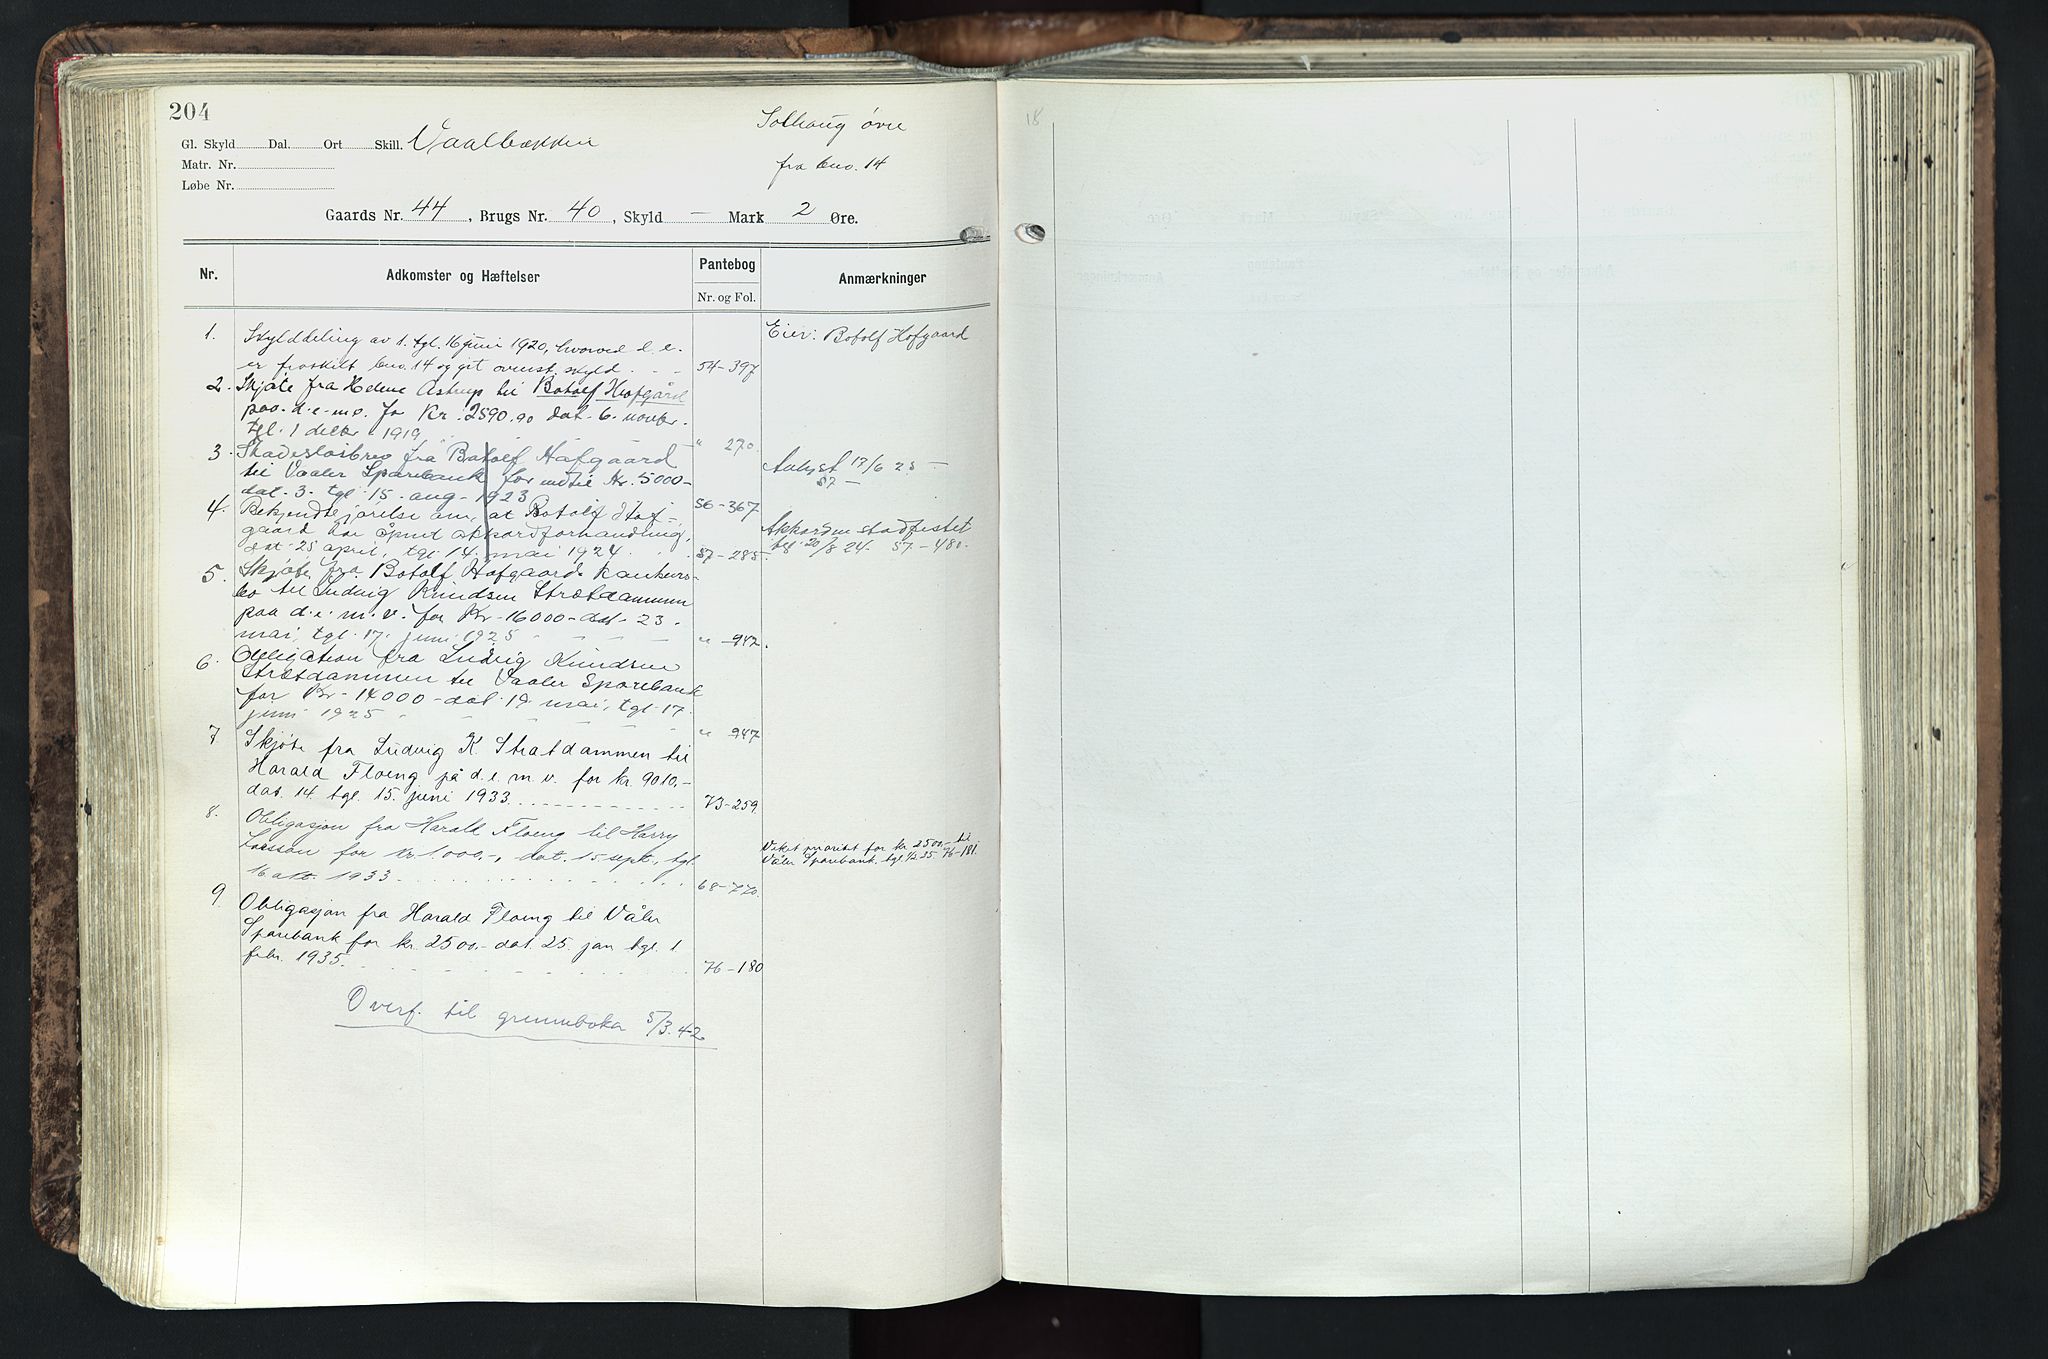 204
Solhaug øvre
Gl. Skyld Dal. Ort Skill. Vaalbækken
fra bno. 14
Matr. Nr.
Løbe Nr.
Gaards Nr. 44, Brugs Nr. 40, Skyld — Mark 2 Øre.
Nr. Adkomster og Hæftelser Pantebog Anmærkninger
Nr. og Fol.
1. Skylddeling av 1. tgl. 16 juni 1920, hvorved d. e. Eier: Botolf Hofgaard
er fraskilt bno. 14 og git ovenst. skyld. 54-397
2. Skjøte fra Helene Astrup til Botolf Hofgård
paa d. e. m. v. for Kr. 2590.90 dat. 6. novbr.
tgl. 1 decbr 1919 " 270.
3. Skadesløsbrev fra Botolf Hofgaard
til Vaaler Sparebank for indtil Kr. 5000- Avlyst 17/6 25 —
dat. 3. tgl 15. aug. 1923 56-367 57 —
4. Bekjendtgjørelse om, at Botolf Hof-
gaard har åpnet akkordforhandling, Akkorden stadfestet
dat. 25 april, tgl. 14. mai 1924. 57-285. tgl 20/8 24. 57-480.
5. Skjøte fra Botolf Hofgaards konkurs-
bo til Ludvig Knudsen Strætdammen
paa d. e. m. v. for Kr. 16000- dat. 23.
mai, tgl. 17. juni 1925 " 942.
6. Obligation fra Ludvig Knudsen
Strætdammen til Vaaler Sparebank
for Kr. 14000- dat. 19. mai, tgl. 17.
juni 1925 " 947
7. Skjøte fra Ludvig K. Stratdammen til
Harald Floeng på d. e. m. v. for kr. 9010,-
dat. 14. tgl. 15. juni 1933 73-259.
8. Obligasjon fra Harald Floeng til Harry
Larsson for kr. 1.000.-, dat. 15 sept., tgl. Veket prioritet for kr. 2500.- til
16 okt. 1933 68-770. Våler Sparebank, tgl. 1/2 35 76-181.
9. Obligasjon fra Harald Floeng til Våler
Sparebank for kr. 2500.- dat. 25. jan tgl. 1
febr. 1935. 76-180
Overf. til grunnboka 5/3.42
18